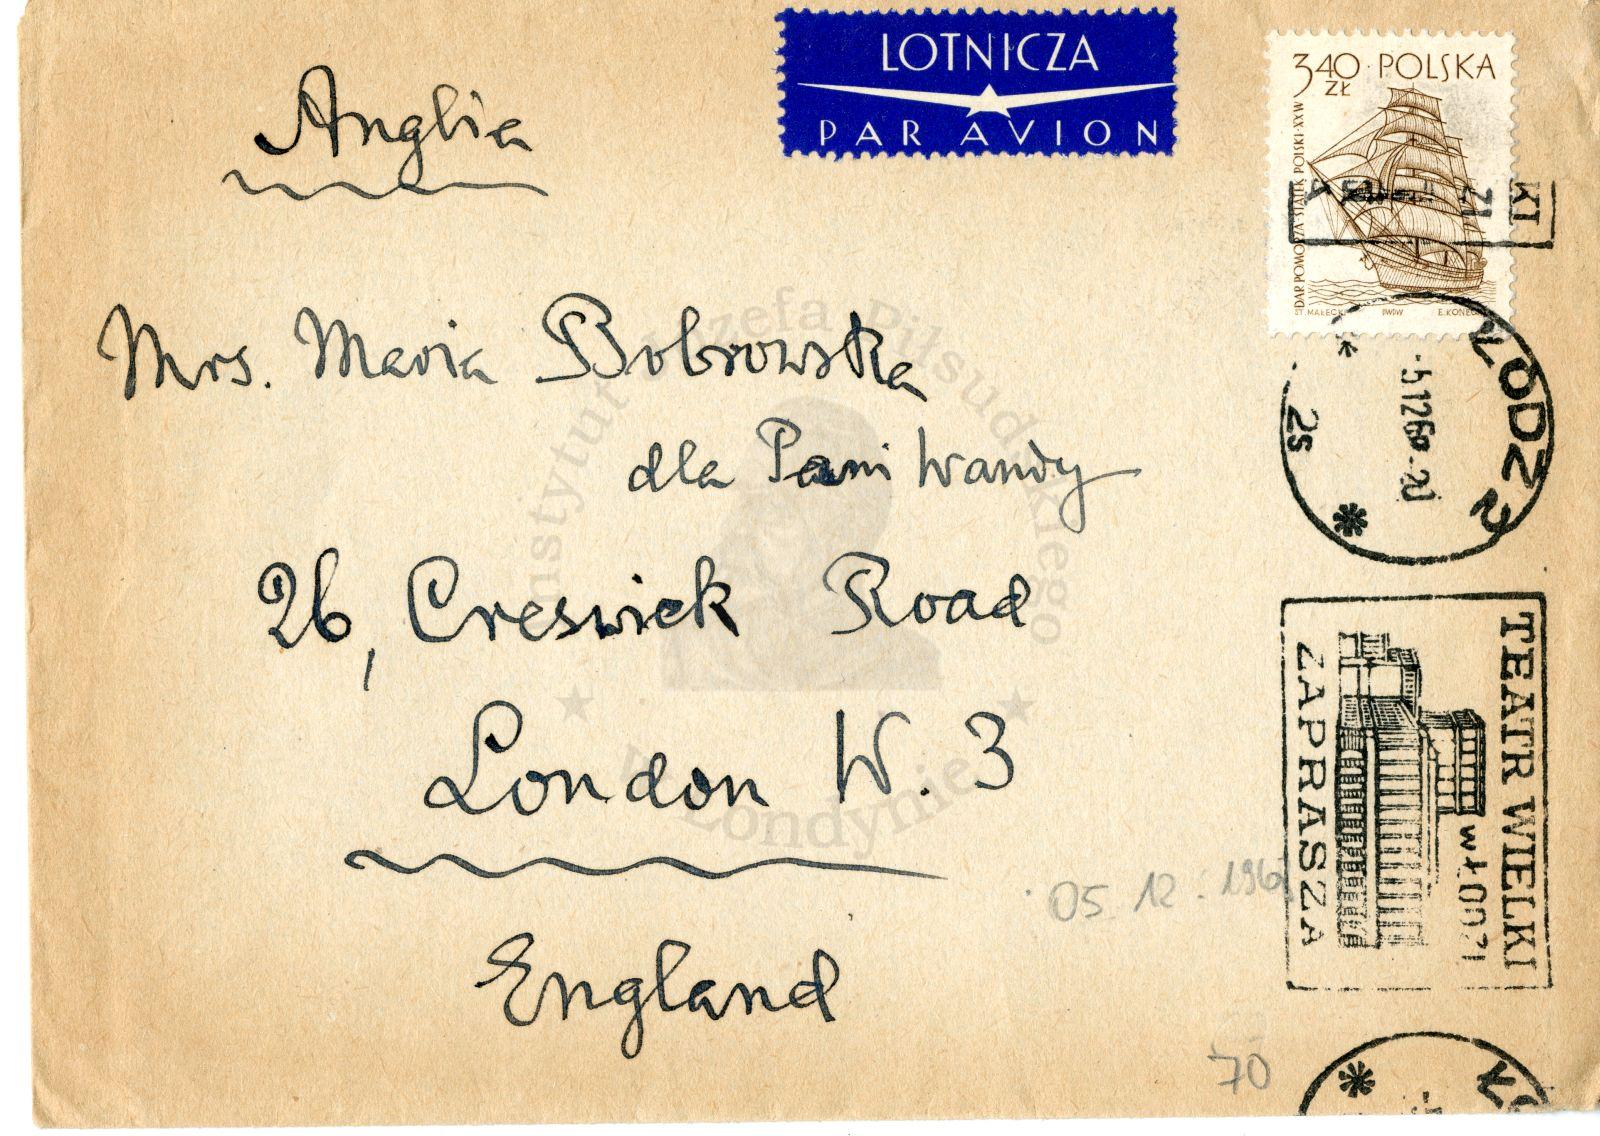 Anglia
LOTNICZA
PAR AVION
3.40 ZŁ POLSKA
DAR POMORZA STATEK POLSKI · XX W
ST. MAŁECKI PWPW E.KONECKI
Mrs. Maria Bobrowska
dla Pani Wandy
26, Creswick Road
London W. 3
England
ŁÓDŹ 2
2s
TEATR WIELKI
w ŁODZI
ZAPRASZA
KI
ZI
05 12.
70
Instytut Józefa Piłsudskiego
w Londynie